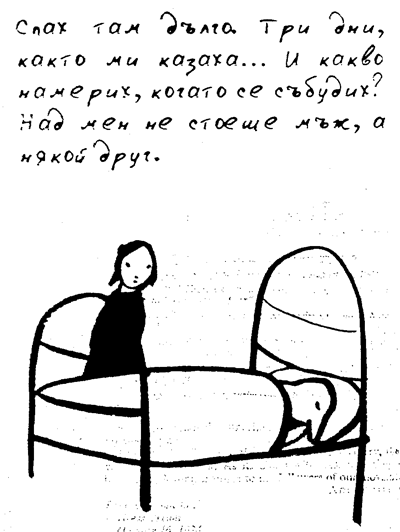 Спах там дълго. Три дни,
както ми казаха... И какво
намерих, когато се събудих?
Над мен не стоеше мъж, а
някой друг.